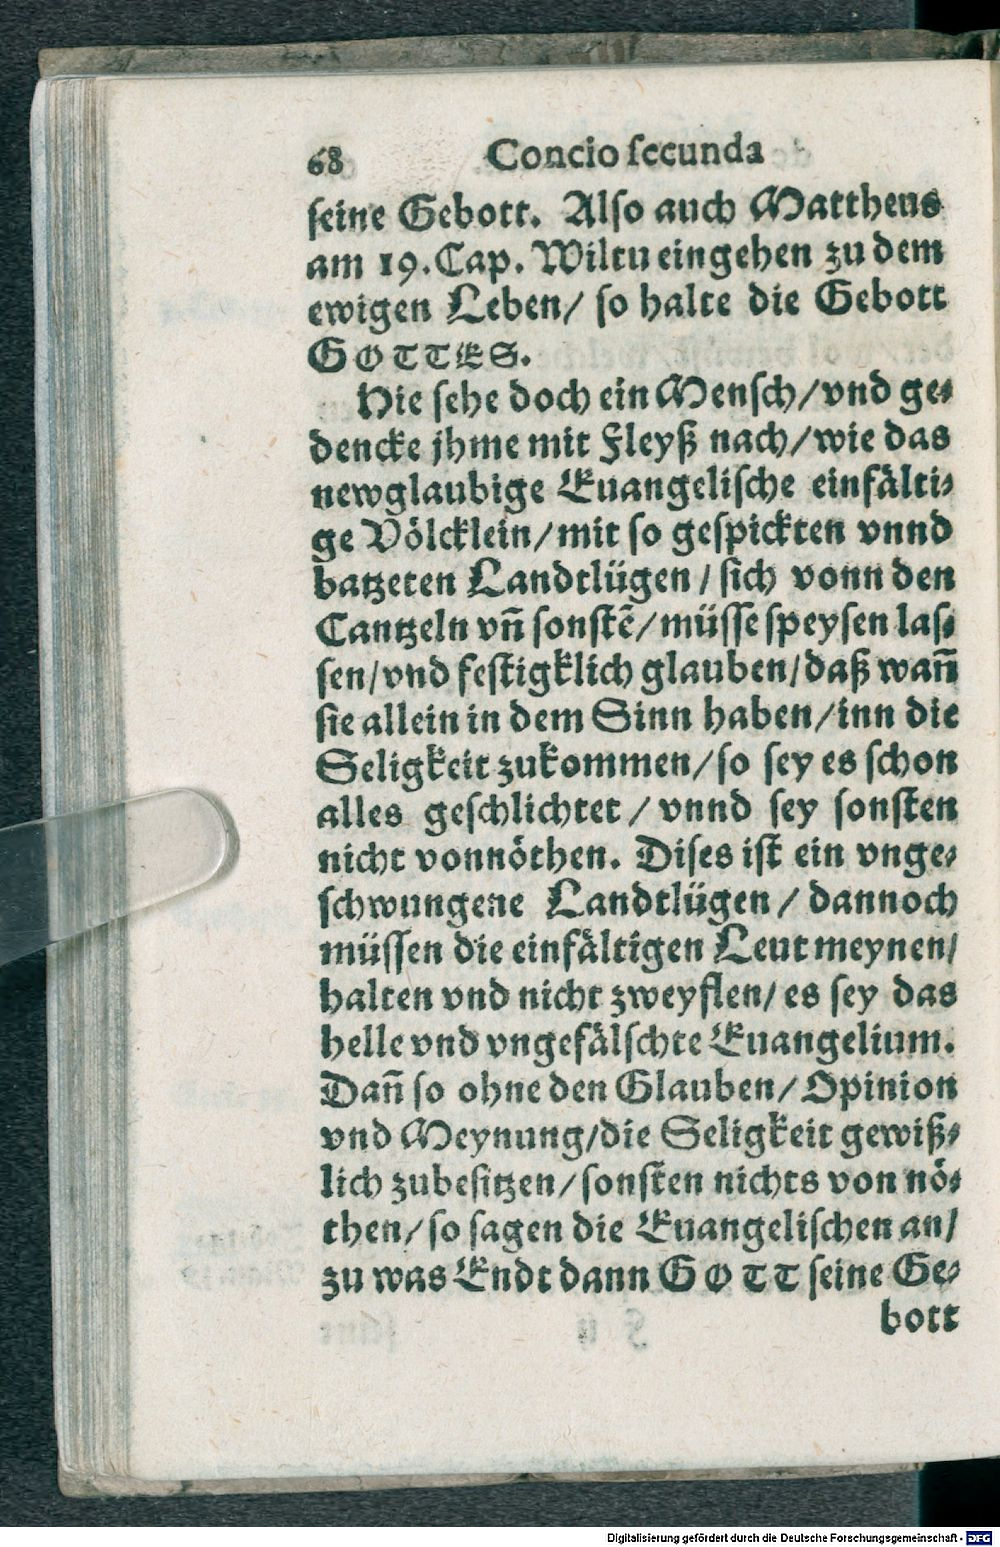 68 Concio secunda
seine Gebott. Also auch Mattheus
am 19. Cap. Wiltu eingehen zu dem
ewigen Leben/ so halte die Gebott
GOTTES.
Hie sehe doch ein Mensch/ vnd ge⸗
dencke jhme mit Fleyß nach/ wie das
newglaubige Euangelische einfälti⸗
ge Völcklein/ mit so gespickten vnnd
batzeten Landtlügen/ sich vonn den
Cantzeln vñ sonstẽ/ müsse speysen las⸗
sen/ vnd festigklich glauben/ daß wañ
sie allein in dem Sinn haben/ inn die
Seligkeit zukommen/ so sey es schon
alles geschlichtet/ vnnd sey sonsten
nicht vonnöthen. Dises ist ein vnge⸗
schwungene Landtlügen/ dannoch
müssen die einfältigen Leut meynen/
halten vnd nicht zweyflen/ es sey das
helle vnd vngefälschte Euangelium.
Dañ so ohne den Glauben/ Opinion
vnd Meynung/ die Seligkeit gewiß⸗
lich zubesitzen/ sonsten nichts von nö⸗
then/ so sagen die Euangelischen an/
zu was Endt dann GOTT seine Ge⸗
bott
Digitalisierung gefördert durch die Deutsche Forschungsgemeinschaft - DFG